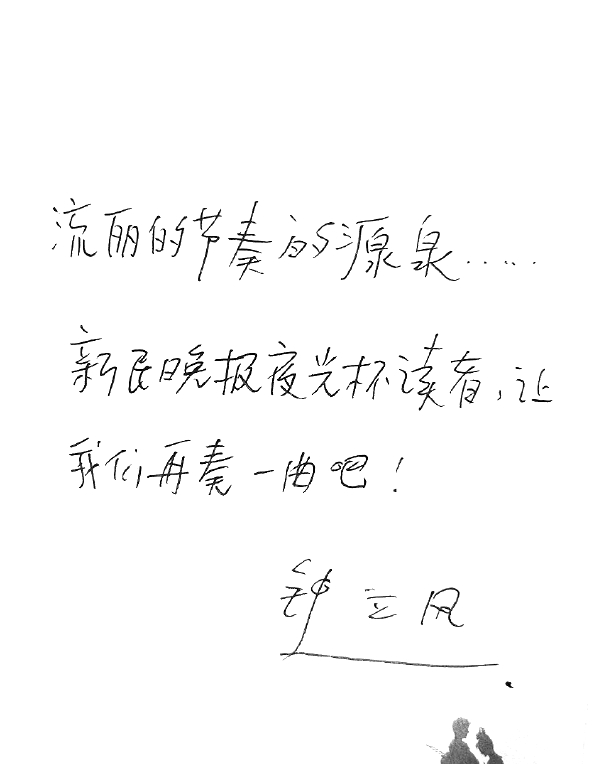 流丽的节奏的源泉.....
新民晚报夜光杯读者,让
我们再奏一曲吧!
钟立风